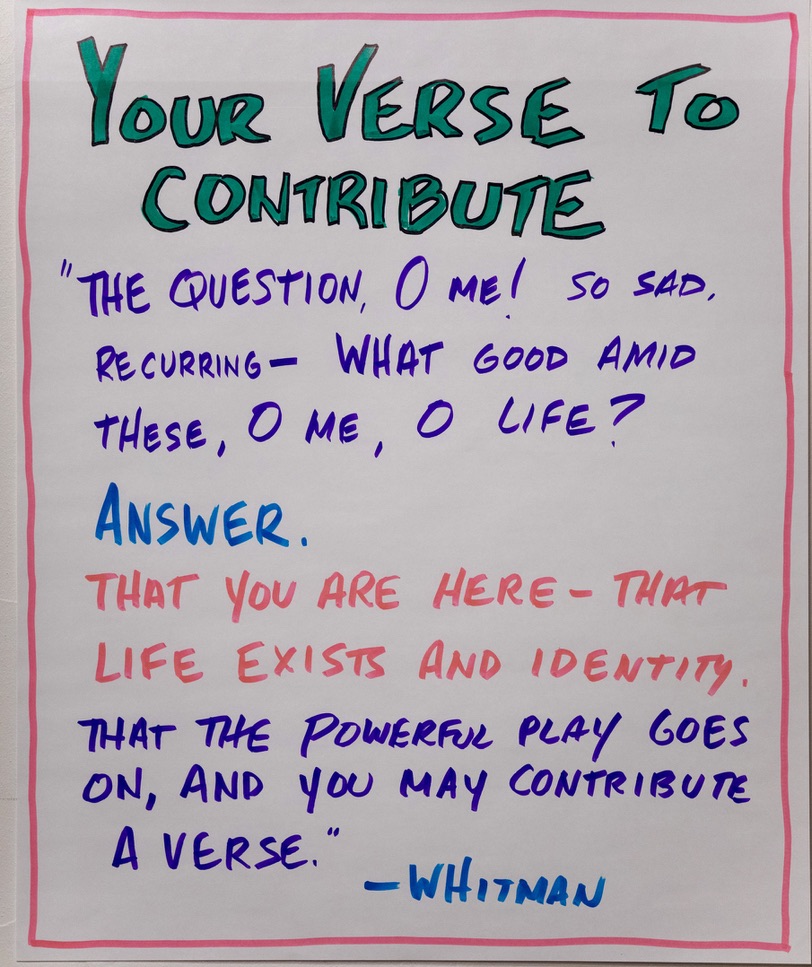 YOUR VERSE TO
CONTRIBUTE
"THE QUESTION, O ME! SO SAD,
RECURRING— WHAT GOOD AMID
THESE, O ME, O LIFE?
ANSWER.
THAT YOU ARE HERE — THAT
LIFE EXISTS AND IDENTITY.
THAT THE POWERFUL PLAY GOES
ON, AND YOU MAY CONTRIBUTE
A VERSE."
—WHITMAN